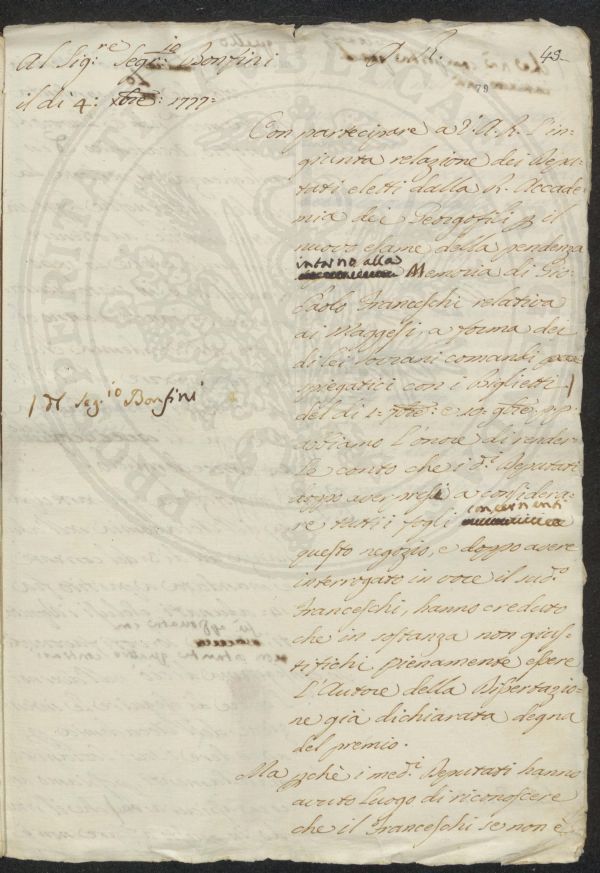 Al Sig:re Seg:io Bonsini
A. R.
49.
79
il dì 4: Xbre: 1777:
Con partecipare a V. A. R. l'in-
giunta relazione dei Depu-
tati eletti dalla R. Accade-
mia dei Georgofili p il
nuovo esame della pendenza
intorno alla Memoria di Gio
Paolo Franceschi relativa
ai Maggesi, a forma dei
di lei sovrani comandi
spiegatici con i Biglietti |
| del Seg.io Bonsini
del dì 1: e 10: 9bre: pp.
abbiamo l'onore di render-
le conto che i d.i Deputati
doppo aver presi a considera-
re tutti i fogli concernenti
questo negozio, e doppo avere
interrogato in voce il sud.o
Franceschi, hanno creduto
che in sostanza non gius-
tifichi pienamente essere
l'Autore della Dissertazio-
ne già dichiarata degna
del premio.
Ma pchè i med.i Deputati hanno
avuto luogo di riconoscere
che il Franceschi se non è